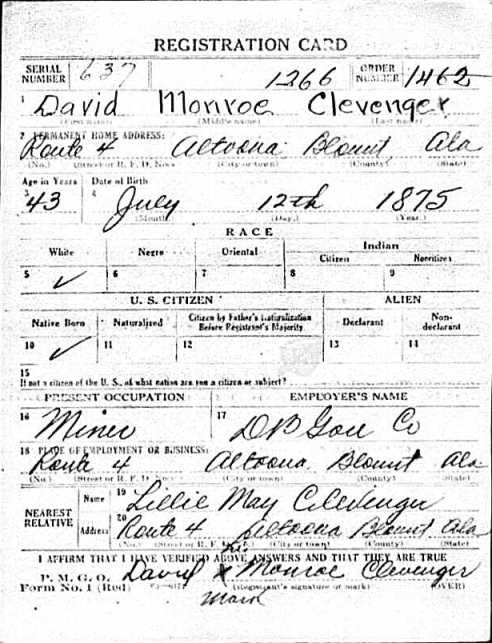 REGISTRATION CARD
SERIAL NUMBER 637 1266 ORDER NUMBER 1462
1 David Monroe Clevenger
(First name) (Middle name) (Last name)
2 PERMANENT HOME ADDRESS:
Route 4 Altoona Blount Ala
(No.) (Street or R. F. D. No.) (City or town) (County) (State)
Age in Years Date of Birth
3 43 4 July 12th 1875
(Month) (Day) (Year)
RACE
White Negro Oriental Indian
Citizen Noncitizen
5 ✓ 6 7 8 9
U. S. CITIZEN ALIEN
Native Born Naturalized Citizen by Father's Naturalization Before Registrant's Majority Declarant Non-declarant
10 ✓ 11 12 13 14
15
If not a citizen of the U. S., of what nation are you a citizen or subject?
PRESENT OCCUPATION EMPLOYER'S NAME
16 Miner 17 Co
18 PLACE OF EMPLOYMENT OR BUSINESS:
Route 4 Altoona Blount Ala
(No.) (Street or R. F. D. No.) (City or town) (County) (State)
NEAREST RELATIVE Name 19 Lillie May Clevenger
Address 20 Route 4 Altoona Blount Ala
(No.) (Street or R. F. D. No.) (City or town) (County) (State)
I AFFIRM THAT I HAVE VERIFIED ABOVE ANSWERS AND THAT THEY ARE TRUE
his
P. M. G. O. David X Monroe Clevenger
Form No. 1 (Red) (Registrant's signature or mark) (OVER)
mark